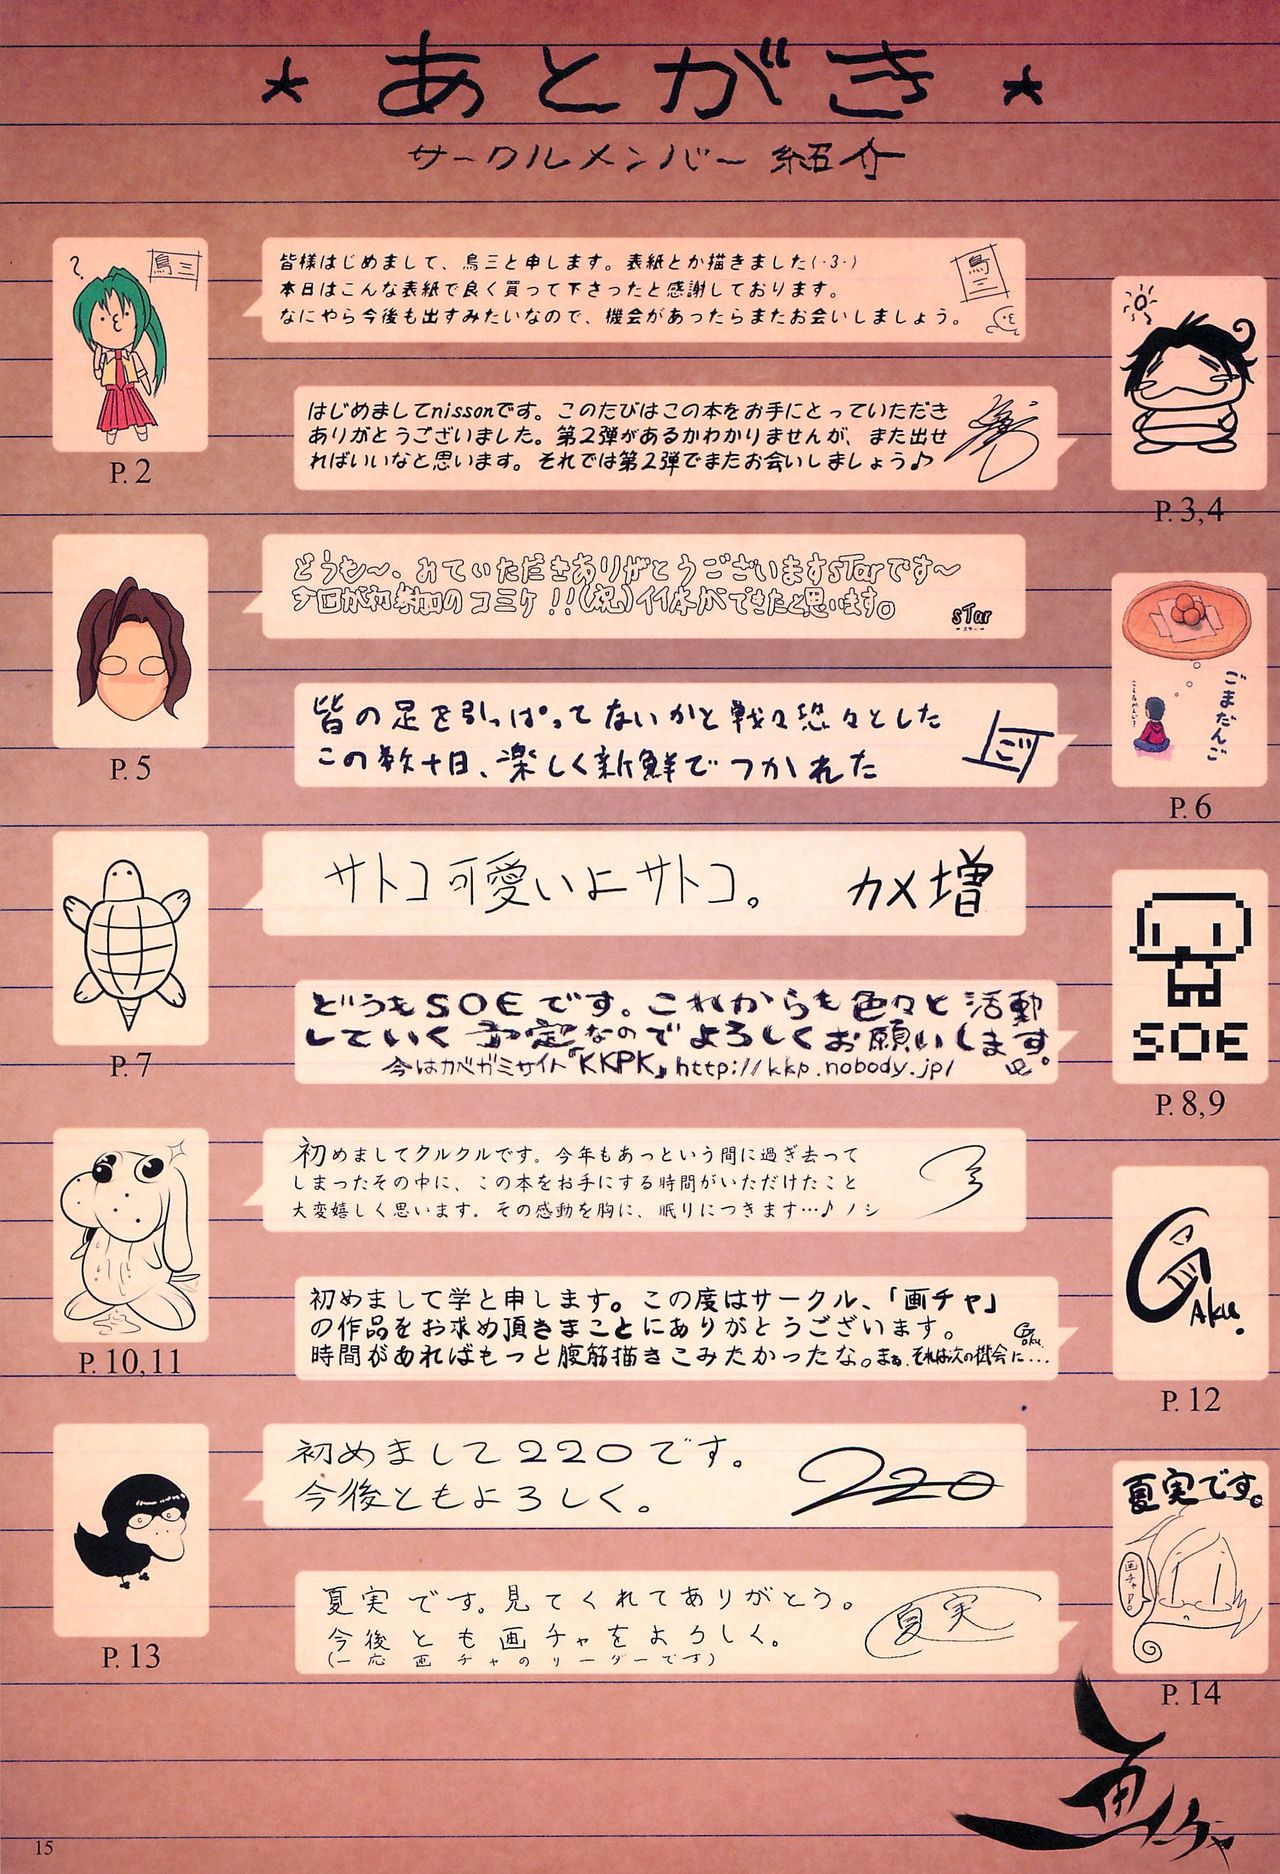 ★ あとがき ★
サークルメンバー 紹介
?
鳥三
皆様はじめまして、鳥三と申します。表紙とか描きました(・3・)
本日はこんな表紙で良く買って下さったと感謝しております。
なにやら今後も出すみたいなので、機会があったらまたお会いしましょう。
鳥三
P. 2
はじめましてnissonです。このたびはこの本をお手にとっていただき
ありがとうございました。第2弾があるかわかりませんが、また出せ
ればいいなと思います。それでは第2弾でまたお会いしましょう♪
P. 3,4
どうも〜、みていただきありがとうございますsTarです〜
今回が初参加のコミケ!!(祝)イイ本ができたと思います。
sTar
-スター-
P. 5
皆の足を引っぱってないかと戦々恐々とした
この数十日、楽しく新鮮でつかれた
ごまだんご
P. 6
サトコ可愛いよサトコ。
カメ増
P. 7
どうもSOEです。これからも色々と活動
していく予定なのでよろしくお願いします。
今はカベガミサイト『KKPK』http://kkp.nobody.jp/
SOE
P. 8,9
初めましてクルクルです。今年もあっという間に過ぎ去って
しまったその中に、この本をお手にする時間がいただけたこと
大変嬉しく思います。その感動を胸に、眠りにつきます…♪ノシ
P. 10,11
初めまして学と申します。この度はサークル、「画チャ」
の作品をお求め頂きまことにありがとうございます。
時間があればもっと腹筋描きこみたかったな。まぁ、それは次の機会に…
Gaku.
GAku.
P. 12
初めまして220です。
今後ともよろしく。
220
P. 13
夏実です。見てくれてありがとう。
今後とも画チャをよろしく。
(一応画チャのリーダーです)
夏実
夏実です。
P. 14
画チャ
15